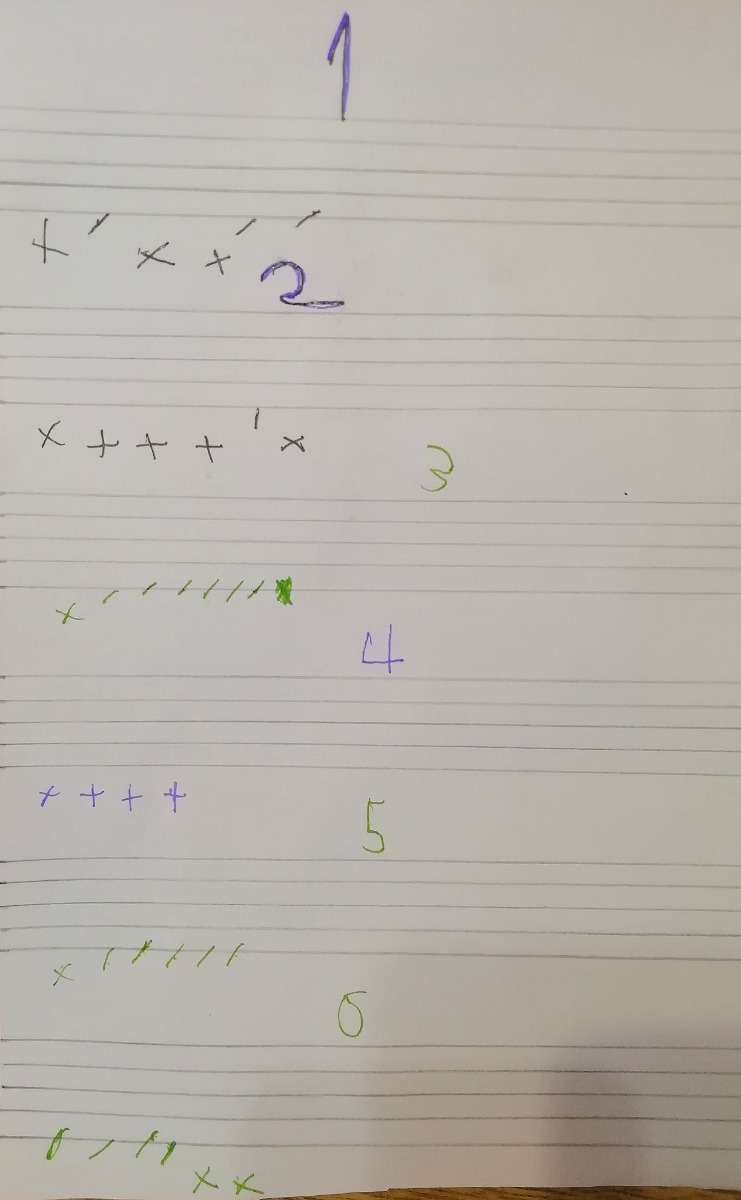 1
+ ' x x ' '
2
x + + + ' x
3
x ' ' ' ' ' '
4
x + + +
5
x ' ' ' ' '
6
' ' ' ' x x